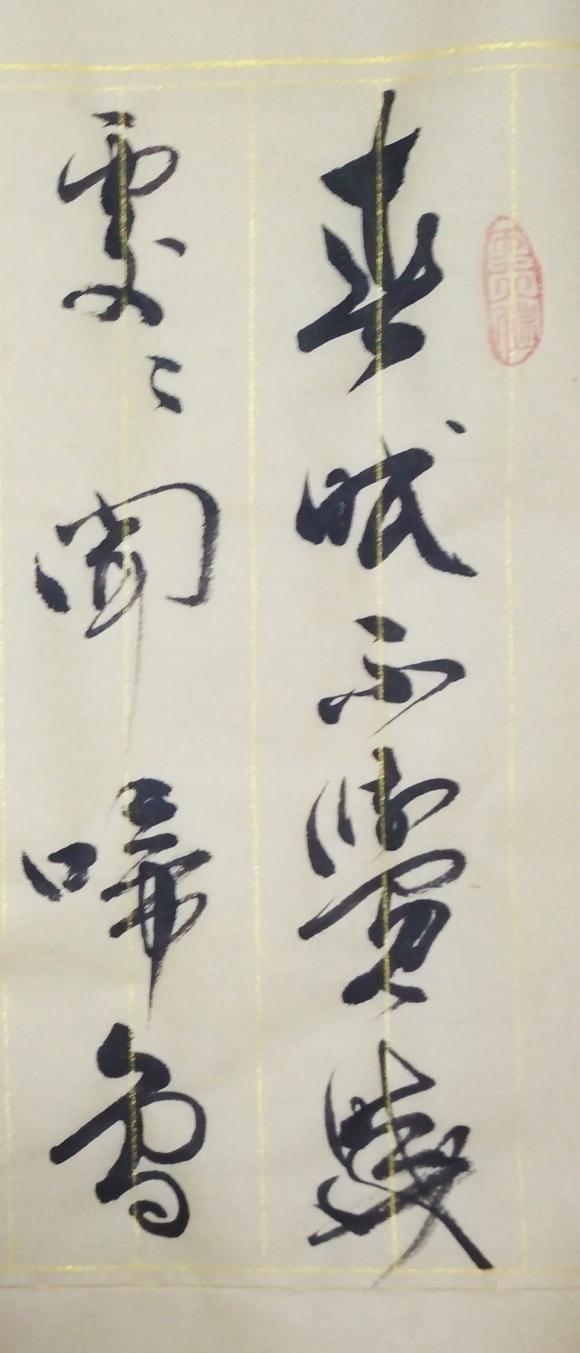 春眠不覺曉
處々聞啼鳥